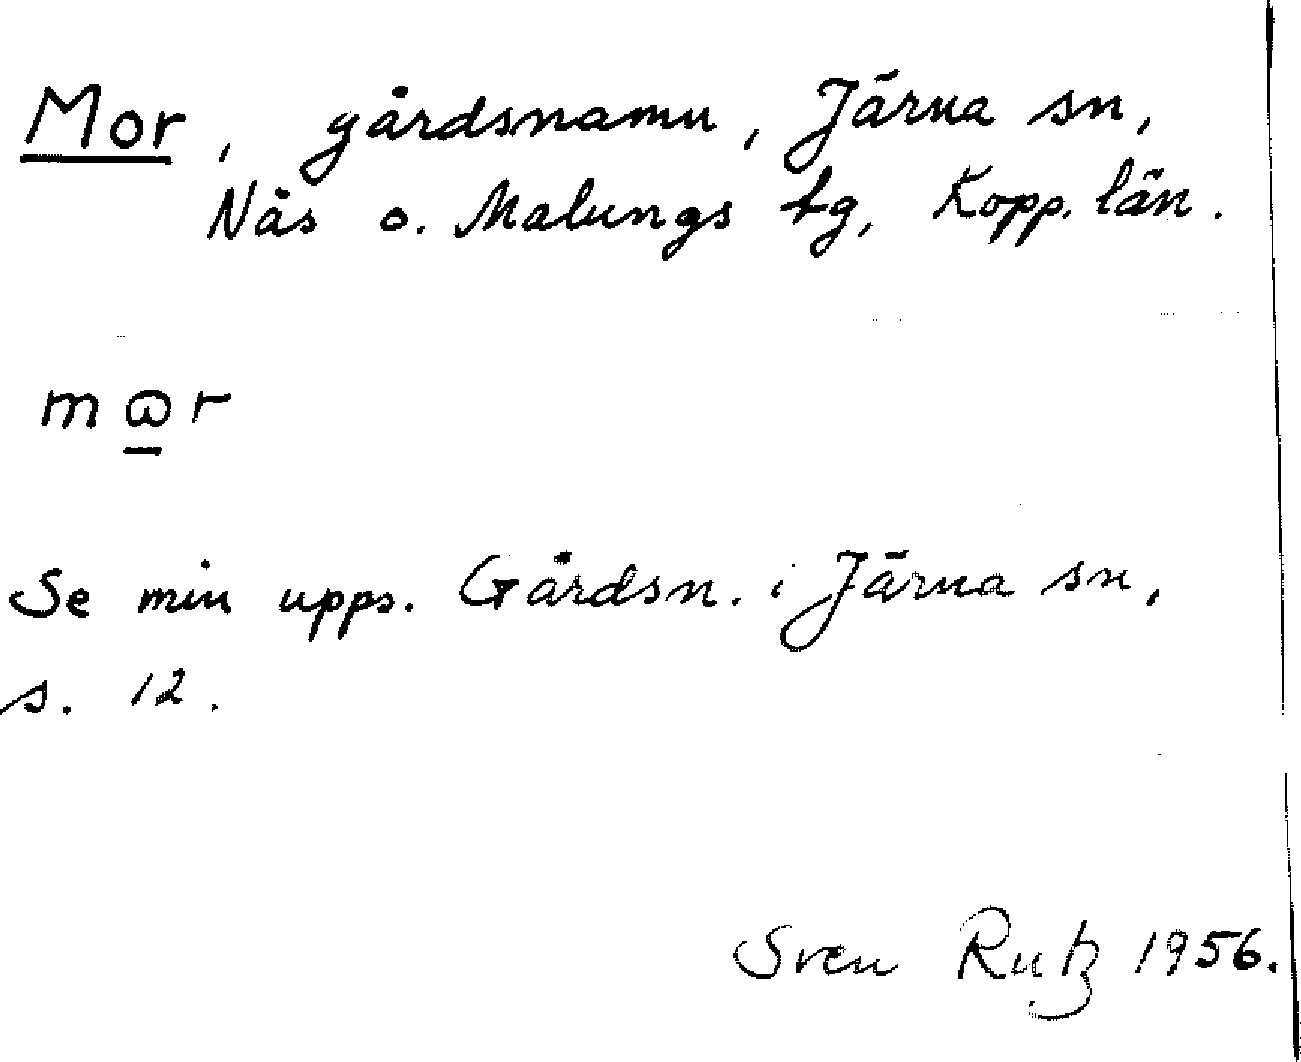 Mor, gårdsnamn, Järna sn,
Nås o. Malungs tg, Kopp. län.
mɷr
Se min upps. Gårdsn. i Järna sn,
s. 12.
Sven Rutz 1956.